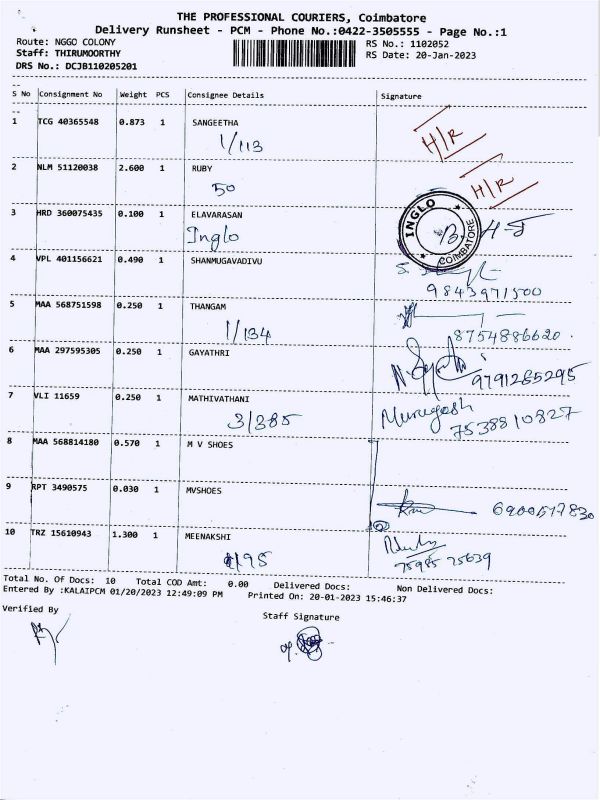 THE PROFESSIONAL COURIERS, Coimbatore
Delivery Runsheet - PCM - Phone No.:0422-3505555 - Page No.:1
Route: NGGO COLONY RS No.: 1102052
Staff: THIRUMOORTHY RS Date: 20-Jan-2023
DRS No.: DCJB110205201
S No Consignment No Weight PCS Consignee Details Signature
1 TCG 40365548 0.873 1 SANGEETHA
1/113 H/R
2 NLM 51120038 2.600 1 RUBY
50 H/R
3 HRD 360075435 0.100 1 ELAVARASAN
Inglo INGLO COIMBATORE
4 VPL 401156621 0.490 1 SHANMUGAVADIVU
9843971500
5 MAA 568751598 0.250 1 THANGAM
1/134 8754886620
6 MAA 297595305 0.250 1 GAYATHRI
9791285295
7 VLI 11659 0.250 1 MATHIVATHANI
3/385 Murugesh
7538810827
8 MAA 568814180 0.570 1 M V SHOES
9 RPT 3490575 0.030 1 MVSHOES
10 TRZ 15610943 1.300 1 MEENAKSHI
Total No. Of Docs: 10 Total COD Amt: 0.00 Delivered Docs: Non Delivered Docs:
Entered By :KALAIPCM 01/20/2023 12:49:09 PM Printed On: 20-01-2023 15:46:37
Verified By
Staff Signature